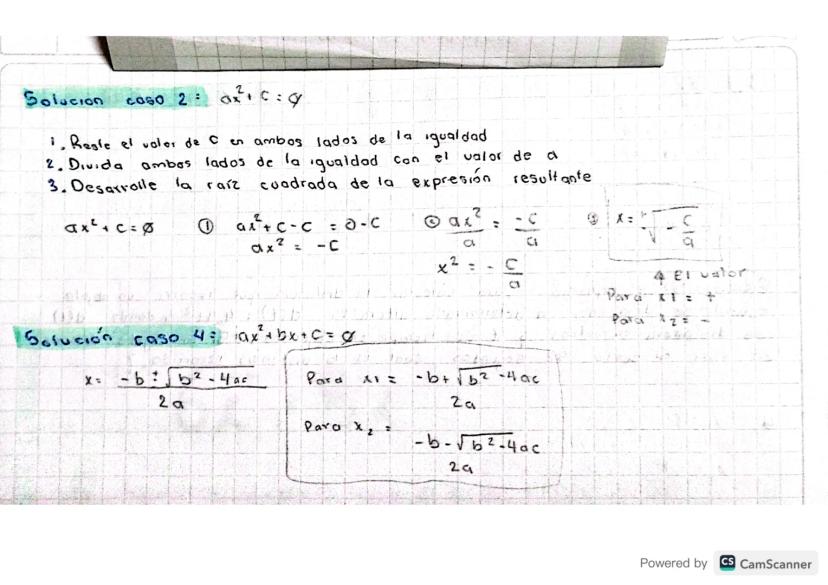 Solución caso 2: ax² + c = 0
1. Reste el valor de c en ambos lados de la igualdad
2. Divida ambos lados de la igualdad con el valor de a
3. Desarrolle la raíz cuadrada de la expresión resultante
ax² + c = 0 ① ax² + c - c = 0 - c ② ax²/a = -c/a ③ x = ±√(-c/a)
ax² = -c
x² = -c/a
4 El valor
Para x1 = +
Para x2 = -
Solución caso 4: ax² + bx + c = 0
x = (-b ± √(b² - 4ac))/2a
Para x1 = (-b + √(b² - 4ac))/2a
Para x₂ = (-b - √(b² - 4ac))/2a
Powered by CS CamScanner